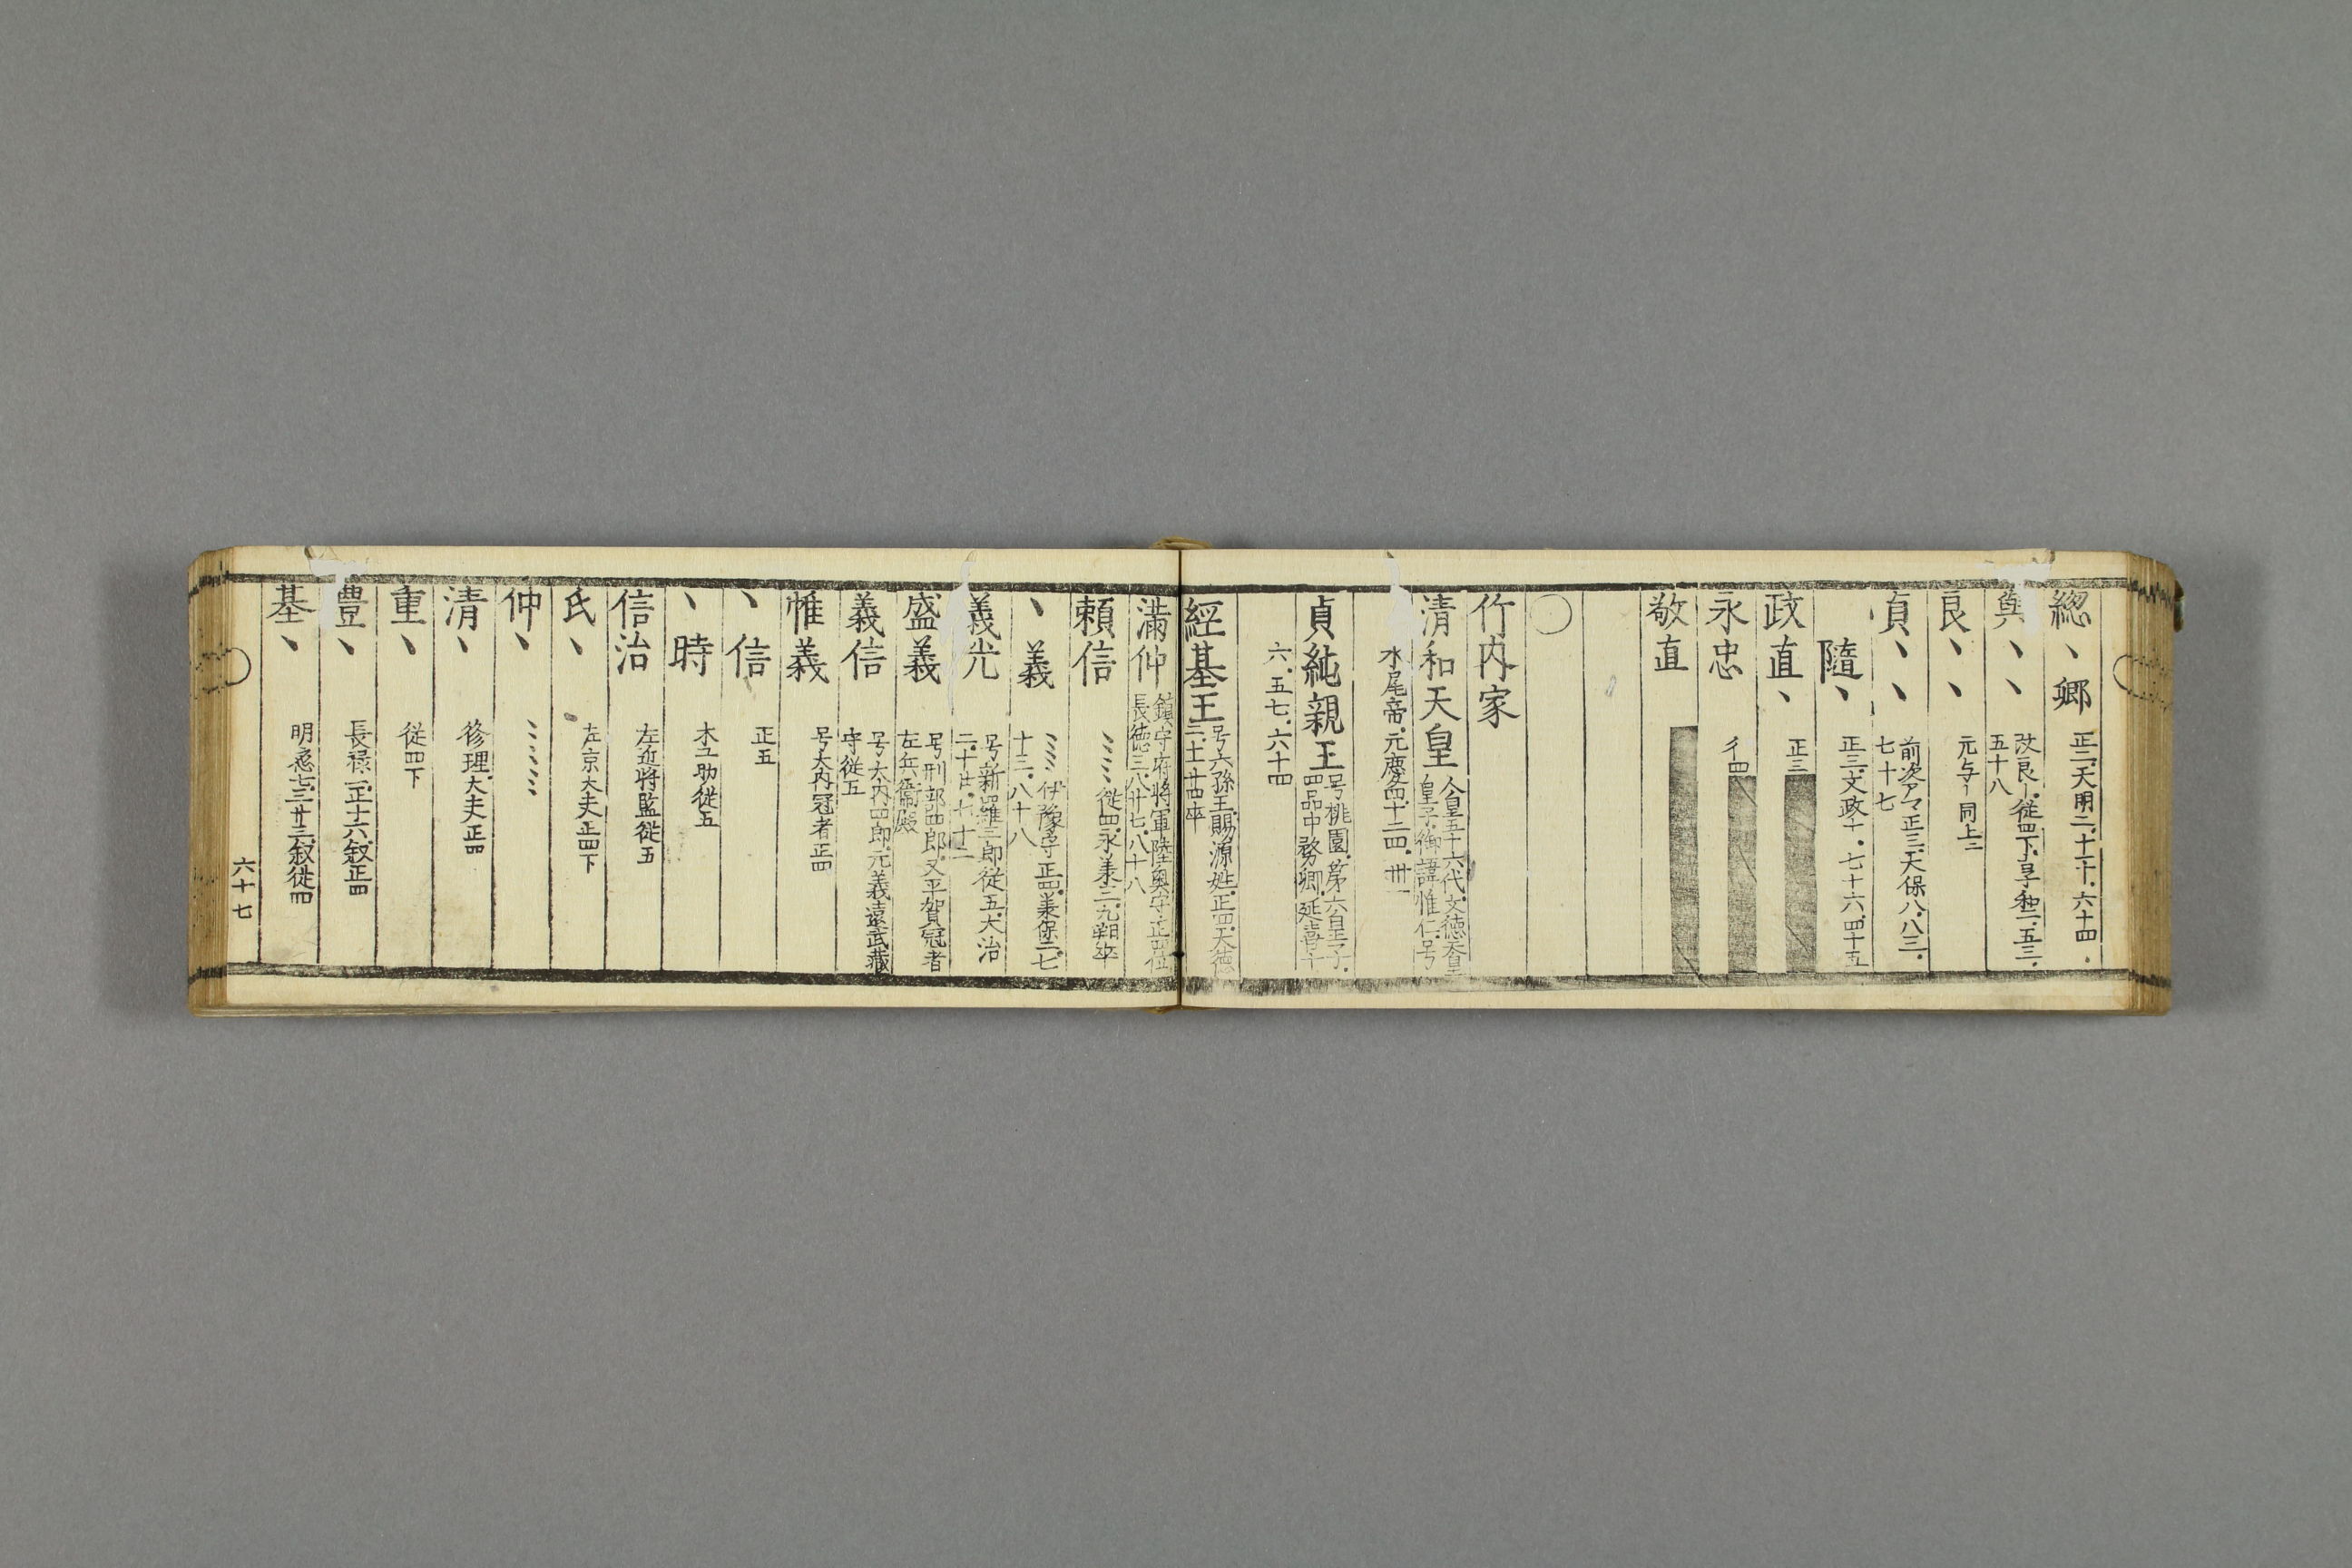 總、郷 正二、天明二、十一、十、六十四、
與、、 改良ー、従四下、享和二、五、三、
五十八
良、、 元与ー同上二
貞、、 前次アマ正三、天保八、八、三、
七十七
隨、 正三、文政十、七十六、四十五
政直、 正三
永忠 彳四
敬直
〇
竹内家
清和天皇 人皇五十六代、文徳天皇
皇子、御諱惟仁、号
水尾帝、元慶四、十二、四、卅一
貞純親王 号桃園、第六皇子、
四品中務卿、延喜十
六、五、七、六十四
經基王 号六孫王、賜源姓、正四、天徳
二、十一、廿四卒
滿仲 鎮守府將軍陸奥守正四位
長徳三、八、廿七、八十八
頼信 、、、、従四、永美三、九、朔卒
、義 、、、、伊豫守正四、美保二、七
十三、八十八
義光 号新羅三郎従五、大治
二、十、廿、七十一
盛義 号刑部四郎、又平賀冠者
左兵衞尉
義信 号大内四郎、元義遠武藏
守従五
惟義 号大内冠者正四
、信 正五
、時 木工助従五
信治 左近將監従五
氏、 左京大夫正四下
仲、 、、、、
清、 修理大夫正四
重、 従四下
豊、 長禄二、正、十六、叙正四
基、 明應七、三、廿三、叙従四
六十七